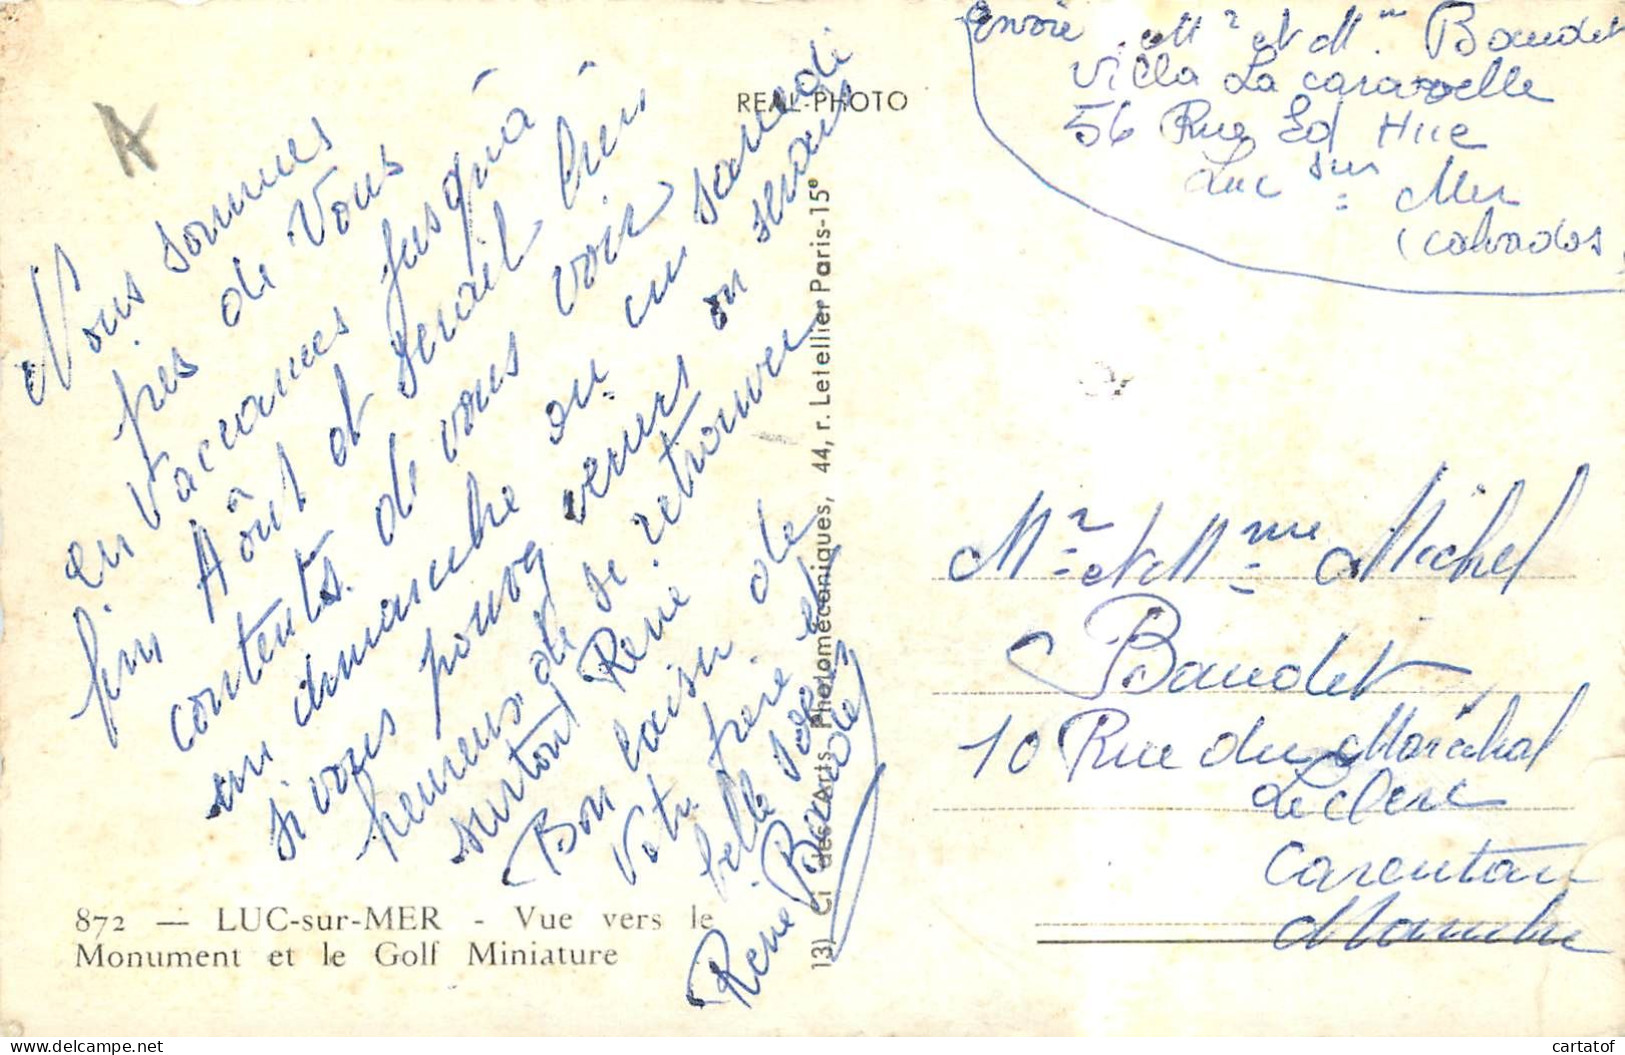 A
Nous sommes
près de Vous
en Vaccances jusqu'à
fin Aôut et serait bien
contents de vous voir
un dimanche ou un samedi
si vous pouvez venir on serais
heureux de se retrouver
surtout René
Bon baiser de
Votre frère et
belle soeur
René Baudet
REAL-PHOTO
13) Ci des Arts Photomécaniques, 44, r. Letellier Paris-15e
872 — LUC-sur-MER - Vue vers le
Monument et le Golf Miniature
Envoie Mr et Mme Baudet
Villa La caravelle
56 Rue Ed Hue
Luc sur Mer
(calvados)
Mr et Mme Michel
Baudet
10 Rue du Maréchal
Leclerc
Carentan
Manche
cartatof
www.delcampe.net